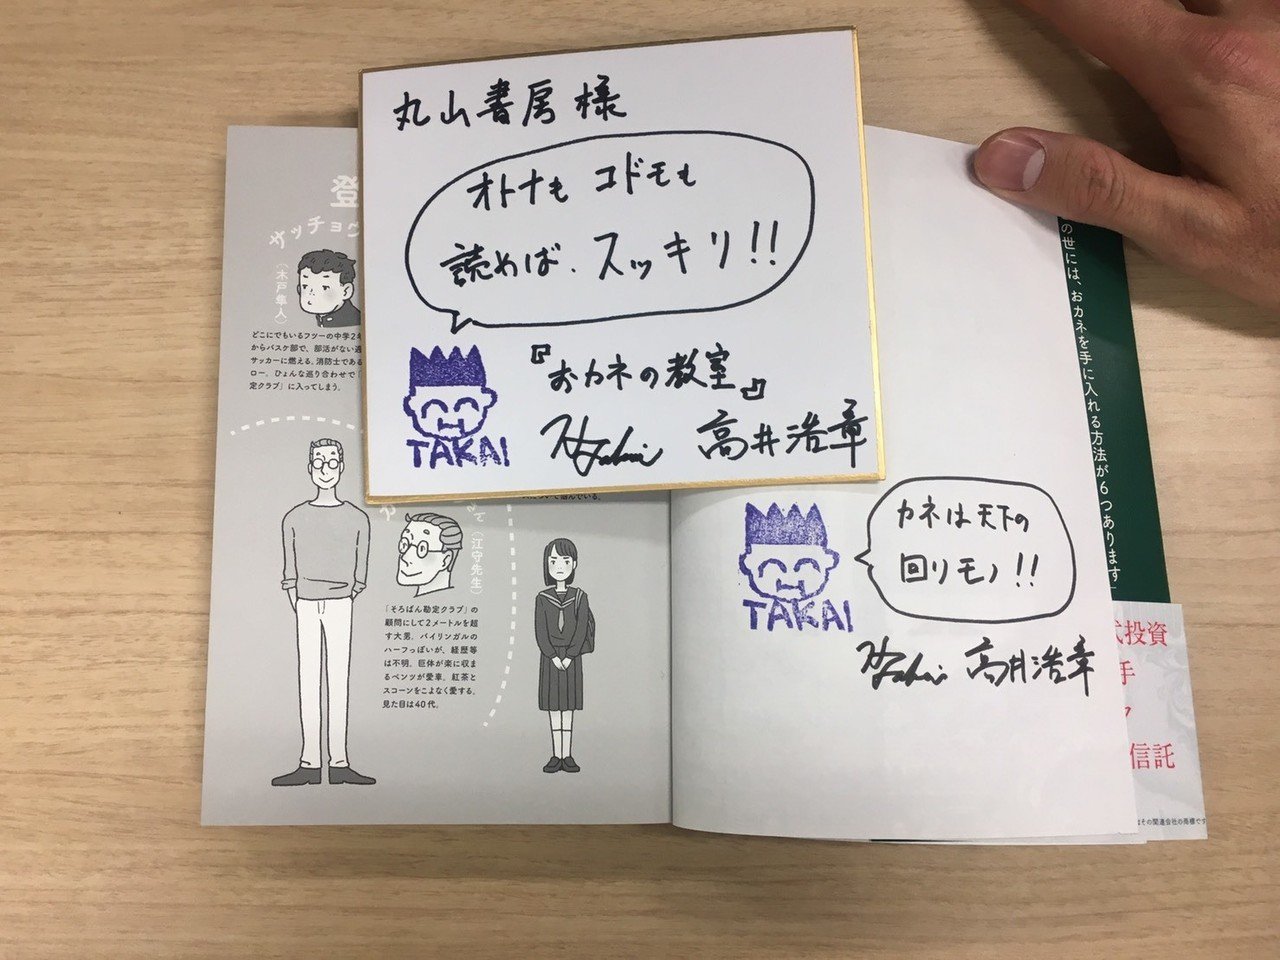 丸山書房 様
オトナも コドモも
読めば、スッキリ!!
TAKAI
『おカネの教室』
高井浩章
登
サッチョウ
(木戸隼人)
どこにでもいるフツーの中学2年
からバスケ部で、部活がない週
サッカーに燃える。消防士である
ロー。ひょんな巡り合わせで「
定クラブ」に入ってしまう。
(江守先生)
「そろばん勘定クラブ」の
顧問にして2メートルを超
す大男。バイリンガルの
ハーフっぽいが、経歴等
は不明。巨体が楽に収ま
るベンツが愛車。紅茶と
スコーンをこよなく愛する。
見た目は40代。
カネは天下の
回りモノ!!
TAKAI
高井浩章
の世には、おカネを手に入れる方法が6つあります」
式投資
手
信託
その関連会社の商標です